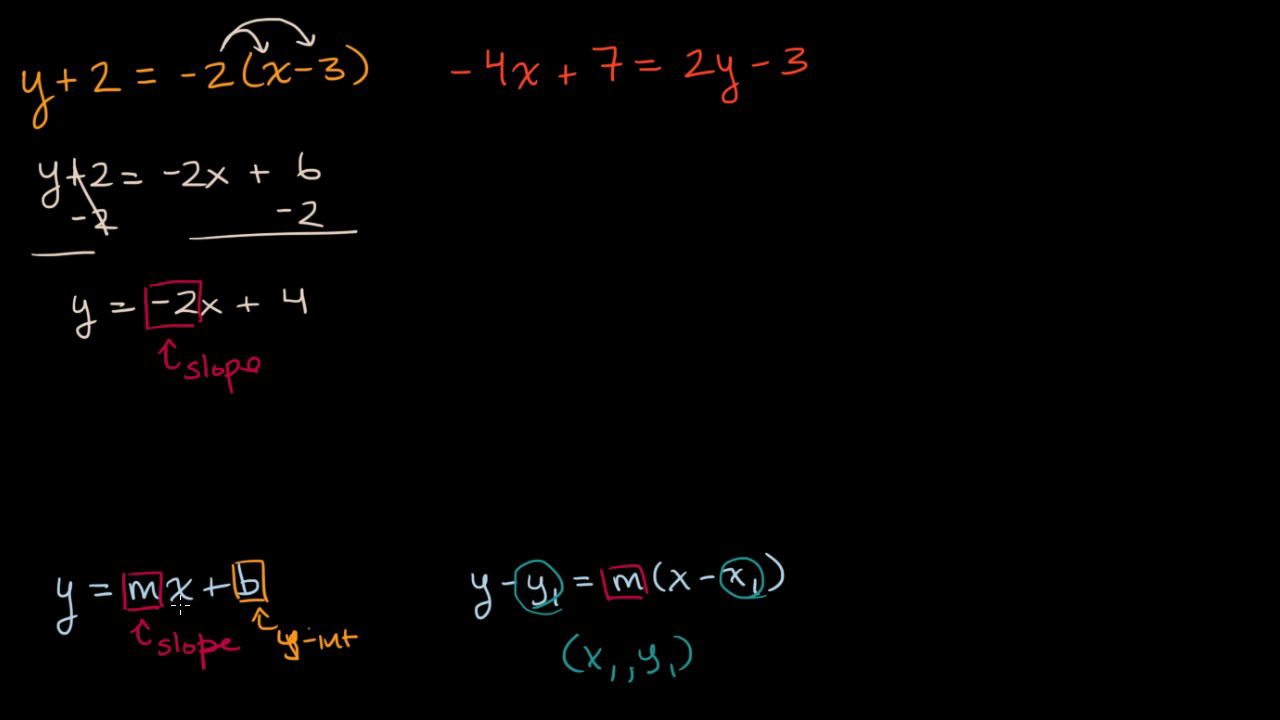 y + 2 = -2(x - 3)
-4x + 7 = 2y - 3
y + 2 = -2x + 6
-2 -2
y = -2x + 4
slope
y = mx + b
slope
y-int
y - y₁ = m(x - x₁)
(x₁, y₁)